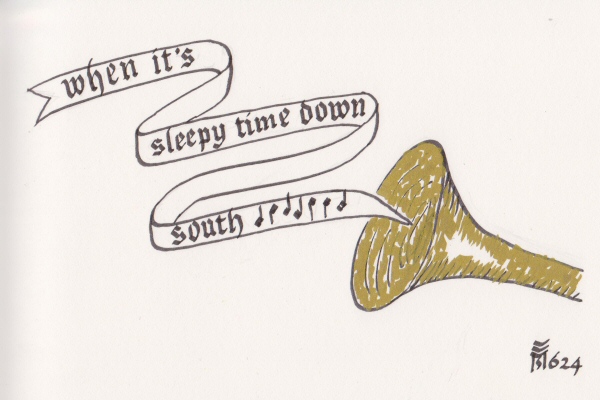 when it's
sleepy time down
south
1624